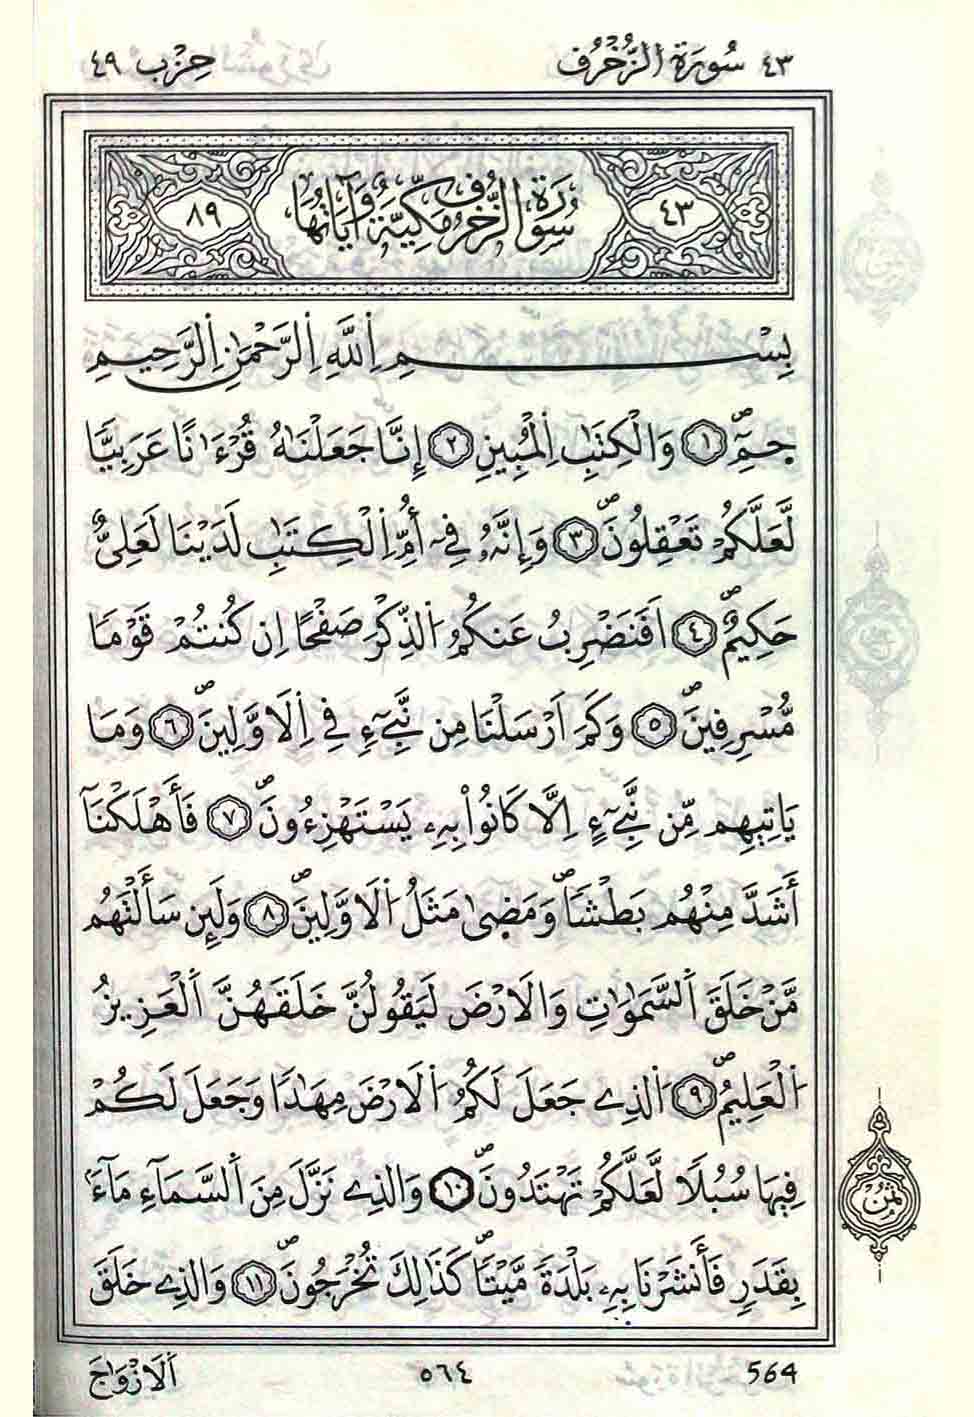 ٤٣ سُورَةُ الزُّخْرُف حِزْب ٤٩
٤٣ سُورَةُ الزُّخْرُفِ مَكِّيَّةٌ وَآيَاتُهَا ٨٩
بِسْمِ اِللَّهِ اِلرَّحْمَٰنِ اِلرَّحِيمِ
حٓمِٓۖ ١ وَالْكِتَٰبِ اِلْمُبِينِ ٢ إِنَّا جَعَلْنَٰهُ قُرْءَٰنًا عَرَبِيًّا
لَّعَلَّكُمْ تَعْقِلُونَۖ ٣ وَإِنَّهُۥ فِےٓ أُمِّ اِلْكِتَٰبِ لَدَيْنَا لَعَلِىٌّ
حَكِيمٌۖ ٤ اَفَنَضْرِبُ عَنكُمُ اُلذِّكْرَ صَفْحًا اِن كُنتُمْ قَوْمًا
مُّسْرِفِينَۖ ٥ وَكَمَ اَرْسَلْنَا مِن نَّبِےٓءٖ فِے اِلَاوَّلِينَۖ ٦ وَمَا
يَاتِيهِم مِّن نَّبِےٓءٍ اِلَّا كَانُواْ بِهِۦ يَسْتَهْزِءُونَۖ ٧ فَأَهْلَكْنَآ
أَشَدَّ مِنْهُم بَطْشًاۖ وَمَضٜىٰ مَثَلُ اُلَاوَّلِينَۖ ٨ وَلَئِن سَأَلْتَهُم
مَّنْ خَلَقَ اَلسَّمَٰوَٰتِ وَالَارْضَ لَيَقُولُنَّ خَلَقَهُنَّ اَلْعَزِيزُ
اُلْعَلِيمُۖ ٩ اُلذِے جَعَلَ لَكُمُ اُلَارْضَ مِهَٰدًا وَجَعَلَ لَكُمْ
فِيهَا سُبُلًا لَّعَلَّكُمْ تَهْتَدُونَۖ ١٠ وَالذِے نَزَّلَ مِنَ اَلسَّمَآءِ مَآءَۢ
بِقَدَرٍ فَأَنشَرْنَا بِهِۦ بَلْدَةً مَّيْتًاۖ كَذَٰلِكَ تُخْرَجُونَۖ ١١ وَالذِے خَلَقَ
ثُمُن
اَلَازْوَٰجَ ٥٦٤ 564